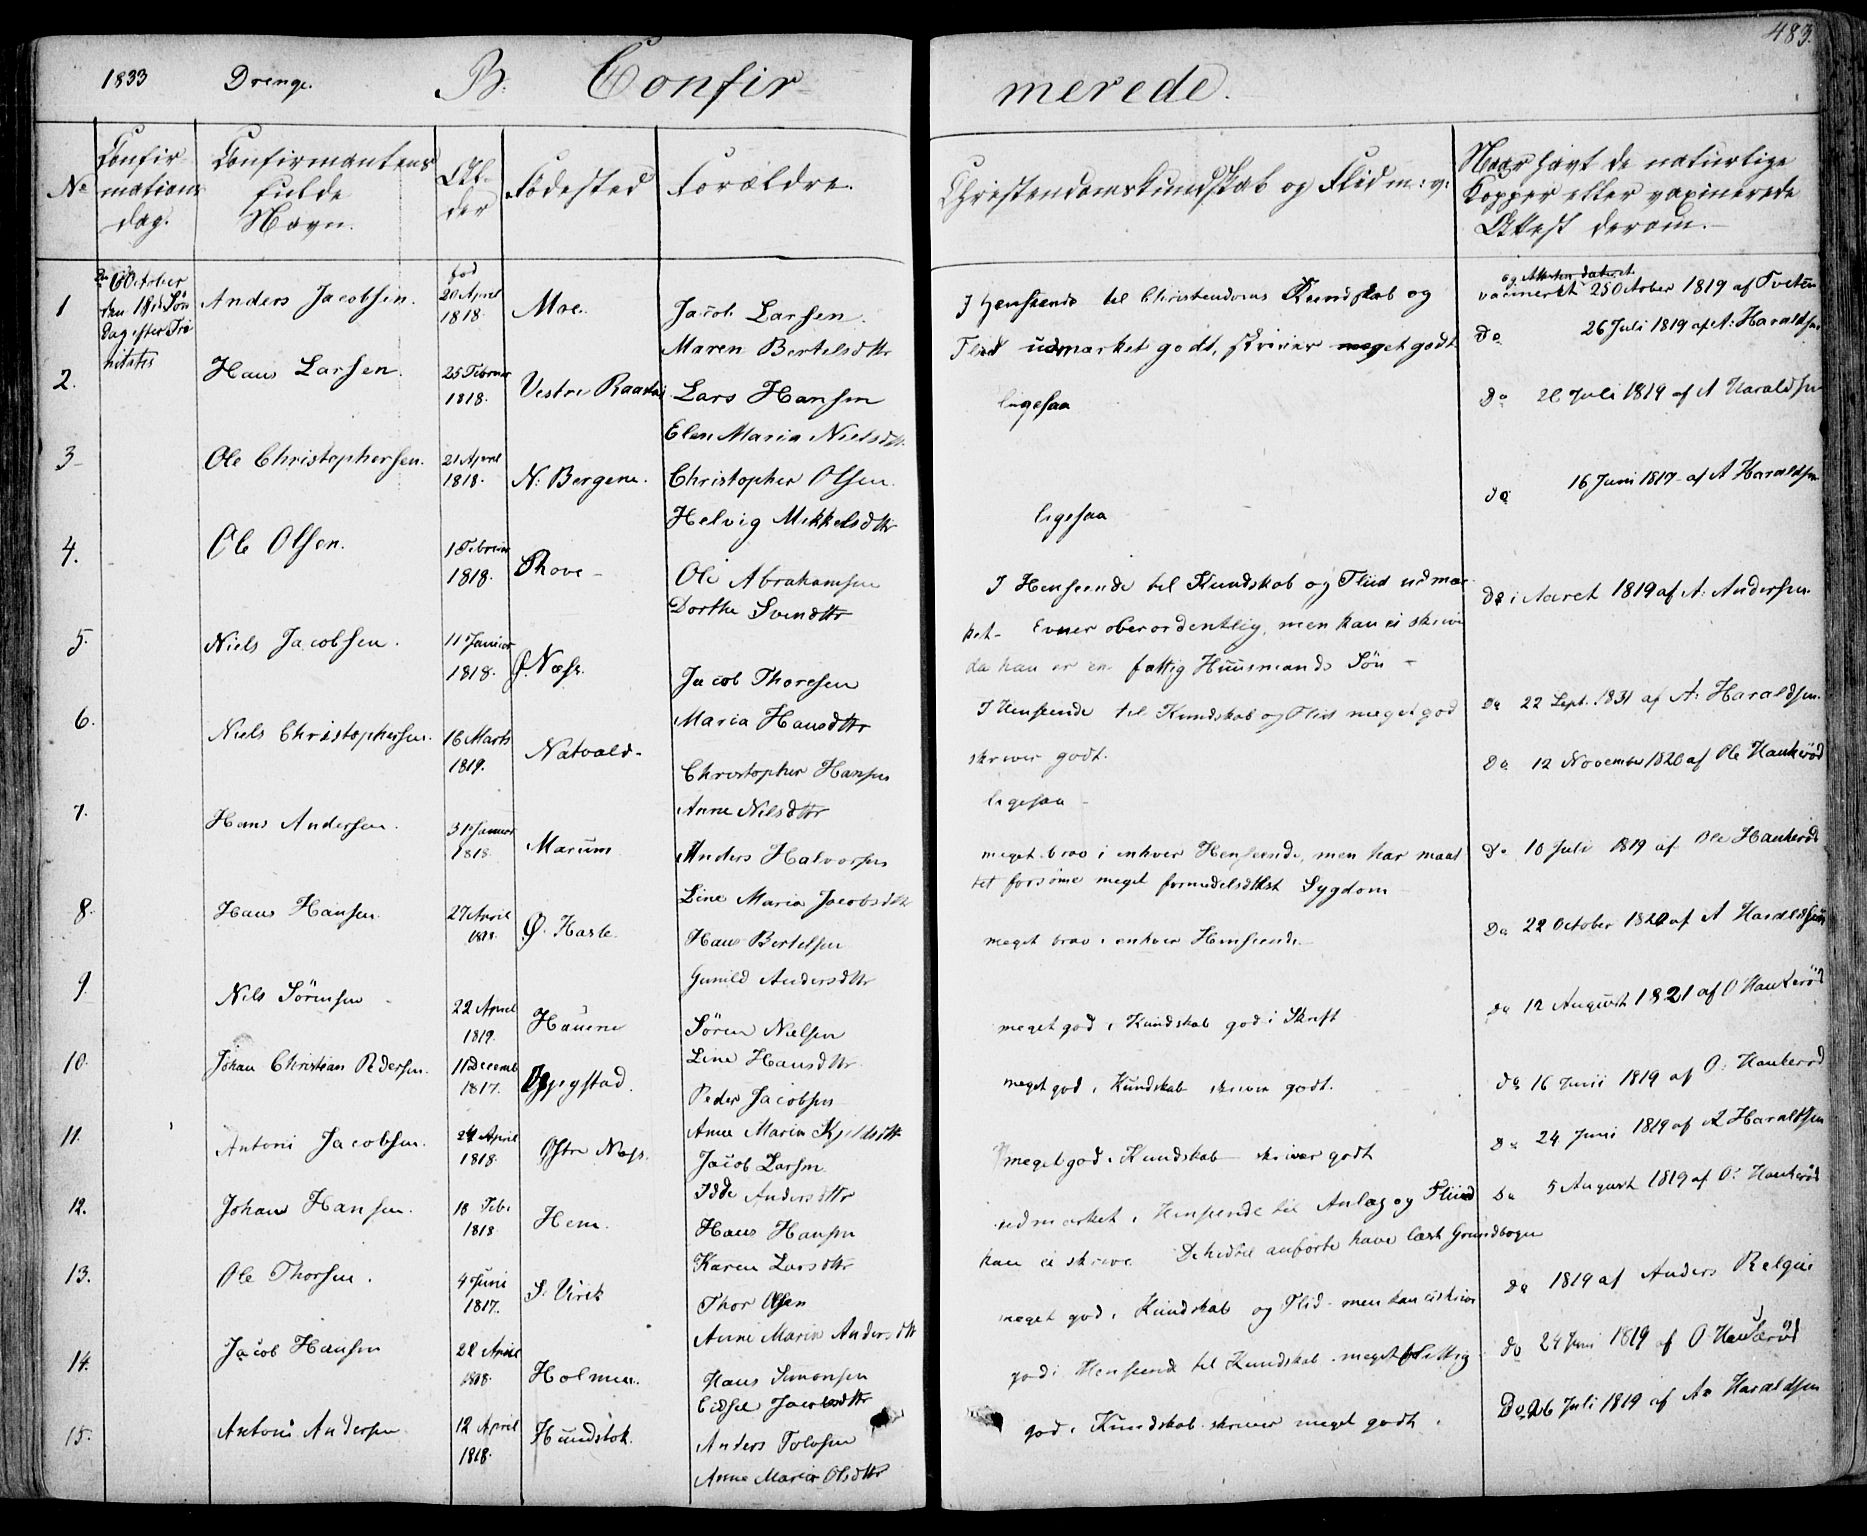 483.
1833 Drenge. B. Confirmerede.
No
Confirmations dag.
Confirmantens fulde Navn.
Alder
Fødested
Forældre.
Christendomskundskab og Flid m: v:
Naar havt de naturlige Kopper eller vaxinerede Attest derom.
1 6 October den 18de Søndag efter Trinitatis Anders Jacobsen. fød 20 April 1818. Moe. Jacob Larsen.
Maren Bertelsdttr
I Henseende til Christendoms Kundskab og
Flid udmærket godt, skriver meget godt
vaccineret 25 October 1819 af Tveten
2. Hans Larsen. 25 Februar 1818. Vestre Raasta Lars Hansen
Elen Maria Nielsdttr.
ligesaa
Do 26 Juli 1819 af A: Haraldsen
3 Ole Christophersen. 21 April 1818. N: Bergene. Christopher Olsen.
Helvig Mikkelsdttr
ligesaa
Do Juli 1819 af A Haraldsen
4. Ole Olsen. 1 Februar 1818. Ole Abrahamsen
Dorthe Svendttr
I Henseende til Kundskab og Fliid udmær
ket - Evner oberordentlig, men kan ei skrive
da han er en fattig Huusmands Søn -
do 16 Juni 1817 af A Haraldsen
5. Niels Jacobsen. 11 Januar 1818. Ø. Næss. Jacob Thoresen
Maria Hansdttr
I Henseende til Kundskab og Flid meget god
skriver godt.
do i Aaret 1819 af A: Andersen.
6. Niels Christophersen. 16 Marts 1819. Natvald - Christopher Hansen
Anne Nilsdttr
ligesaa -
Do 22 Sept. 1831 af A: Haraldsen.
7. Hans Andersen. 31 Januar 1818 Marum Anders Halvorsen
Line Maria Jacobsdttr
meget brav i enhver Henseende, men har maat
tet forsöme meget formedelst Sygdom
Do 12 November 1820 af Ole Haukeröd
8. Hans Hansen. 27 April 1818. Ø. Hasle. Hans Bertelsen
Gunild Andersdttr
meget brav i enhver Henseende
Do 10 Juli 1819 af Ole Haukeröd
9. Nils Sörensen 22 April 1819. Hauene Sören Nielsen
Line Hansdttr.
meget god i Kundskab god i Skrift
Do 22 October 1820 af A Haraldsen
10. Johan Christian Pedersen. 11 Decemb 1817. Oppegstad. Peder Jacobsen
Anne Maria Kjeldsdttr
meget god i Kundskab skriver godt.
Do 12 August 1821 af O Haukeröd
11. Antoni Jacobsen. 24 April 1818. Østre Næss. Jacob Larsen.
Idde Andersdttr
meget god i Kundskab skriver godt
Do 16 Juni 1819 af O: Haukeröd
12. Johans Hansen. 18 Feb: 1818 Hem. Hans Hansen
Karen Larsdttr
udmærket i Henseende til Anlæg og Fliid
kan ei skrive De hidtil anförte have læst Grundbogen
Do 24 Juni 1819 af A Haraldsen
Do 5 August 1819 af O: Haukeröd
13. Ole Thorsen. 4 Juni 1817. S: Virik Thor Olsen
Anne Maria Andersdttr
meget god i Kundskab og Flid - men kan ei skrive
Do 1819 af Anders
14. Jacob Hansen 28 April 1818. Holmen. Hans Simonsen
Jacobsdttr
god i Henseende til Kundskab. meget flittig
do 24 Juni 1819 af O Haukeröd
15. Antoni Andersen 12 April 1818. Hundstok. Anders Tolvsen
Anne Maria Olsdttr
god i Kundskab. skriver meget godt.
Do 26 Juli 1819 af A: Haraldsen